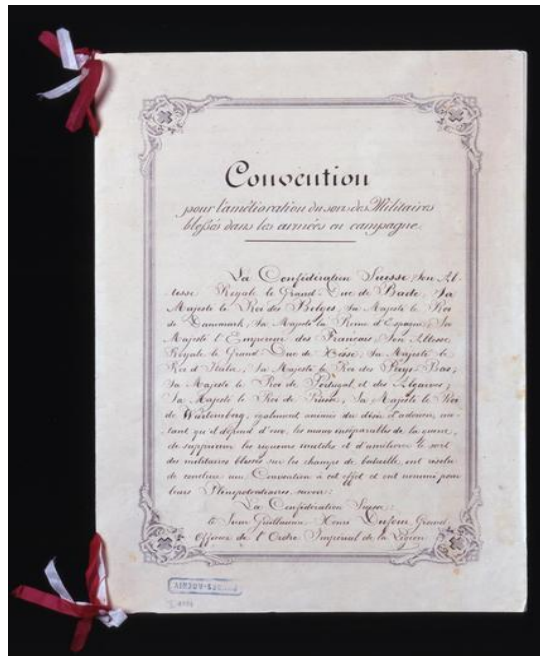 Convention
pour l'amélioration du sort des Militaires
blessés dans les armées en campagne.
La Confédération Suisse; Son Al-
tesse Royale le Grand-Duc de Bade; Sa
Majesté le Roi des Belges; Sa Majesté le Roi
de Danemark; Sa Majesté la Reine d'Espagne; Sa
Majesté l'Empereur des Français; Son Altesse
Royale le Grand Duc de Hesse; Sa Majesté le
Roi d'Italie; Sa Majesté le Roi des Pays-Bas;
Sa Majesté le Roi de Portugal et des Algarves;
Sa Majesté le Roi de Prusse; Sa Majesté le Roi
de Würtemberg, également animés du désir d'adoucir, au-
tant qu'il dépend d'eux, les maux inséparables de la guerre,
de supprimer les rigueurs inutiles et d'améliorer le sort
des militaires blessés sur les champs de bataille, ont résolu
de conclure une Convention à cet effet et ont nommé pour
leurs Plénipotentiaires, savoir:
La Confédération Suisse:
le Sieur Guillaume Henri Dufour, Grand
Officier de l'Ordre Impérial de la Légion